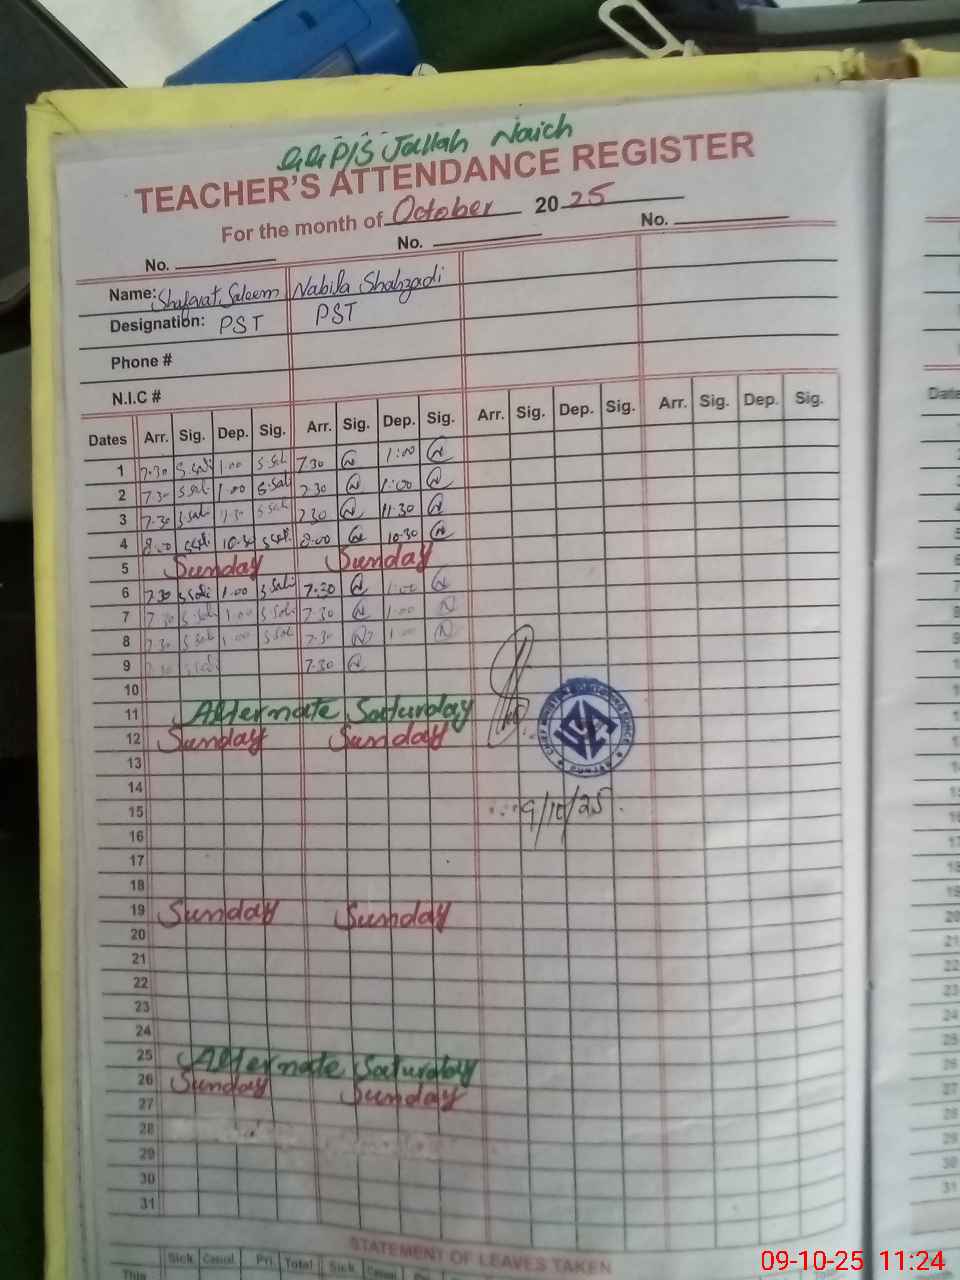 G.G.P/S Jallah Naich
TEACHER'S ATTENDANCE REGISTER
For the month of October 2025
No. No. No.
Name: Shafqat Saleem Nabila Shahzadi
Designation: PST PST
Phone #
N.I.C #
Dates Arr. Sig. Dep. Sig. Arr. Sig. Dep. Sig. Arr. Sig. Dep. Sig. Arr. Sig. Dep. Sig.
1 7.30 1.00 7.30 1:00
2 7.30 1.00 7.30 1:00
3 7.30 7.30 11.30
4 8.00 10.30 8.00 10.30
5 Sunday Sunday
6 7.30 1.00 7.30 1:00
7 7.30 1.00 7.30 1:00
8 7.30 1.00 7.30 1:00
9 7.30 7.30
10
11 Alternate Saturday
12 Sunday Sunday
13
14
15 9/10/25
16
17
18
19 Sunday Sunday
20
21
22
23
24
25 Alternate Saturday
26 Sunday Sunday
27
28
29
30
31
STATEMENT OF LEAVES TAKEN
Sick Casual Pri. Total Sick Casual
This
09-10-25 11:24